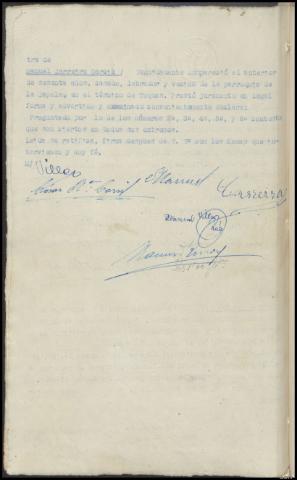 tra de
Manuel Carreira García / Seguidamente compareció el anterior
de setenta años, casado, labrador y vecino de la parroquia de
la Capela, en el término de Toques. Prestó juramento en legal
forma y advertido y examinado convenientemente declara:
Preguntado por lo de los números 2º, 3º, 4º, 5º, y 6º contesta
que son ciertos en todos sus extremos.
Leída se ratifica, firma después de S. Sª con los demás que in-
tervienen y doy fé.
Villar
Manuel
Carreira
Manuel